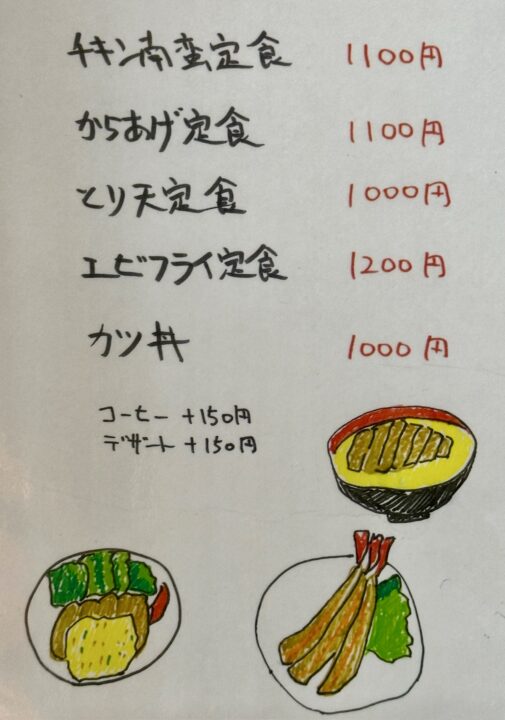 チキン南蛮定食 1100円
からあげ定食 1100円
とり天定食 1000円
エビフライ定食 1200円
カツ丼 1000円
コーヒー +150円
デザート +150円